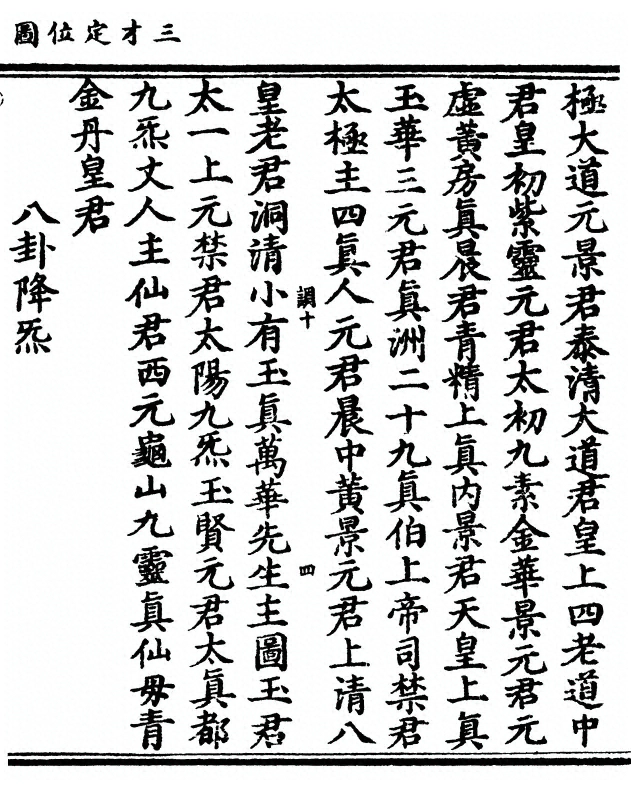 三才定位圖
極大道元景君泰清大道君皇上四老道中
君皇初紫靈元君太初九素金華景元君元
虛黃房眞晨君青精上眞內景君天皇上眞
玉華三元君眞洲二十九眞伯上帝司禁君
太極主四眞人元君晨中黃景元君上清八
調十
四
皇老君洞清小有玉眞萬華先生主圖玉君
太一上元禁君太陽九炁玉賢元君太眞都
九炁丈人主仙君西元龜山九靈眞仙母青
金丹皇君
八卦降炁